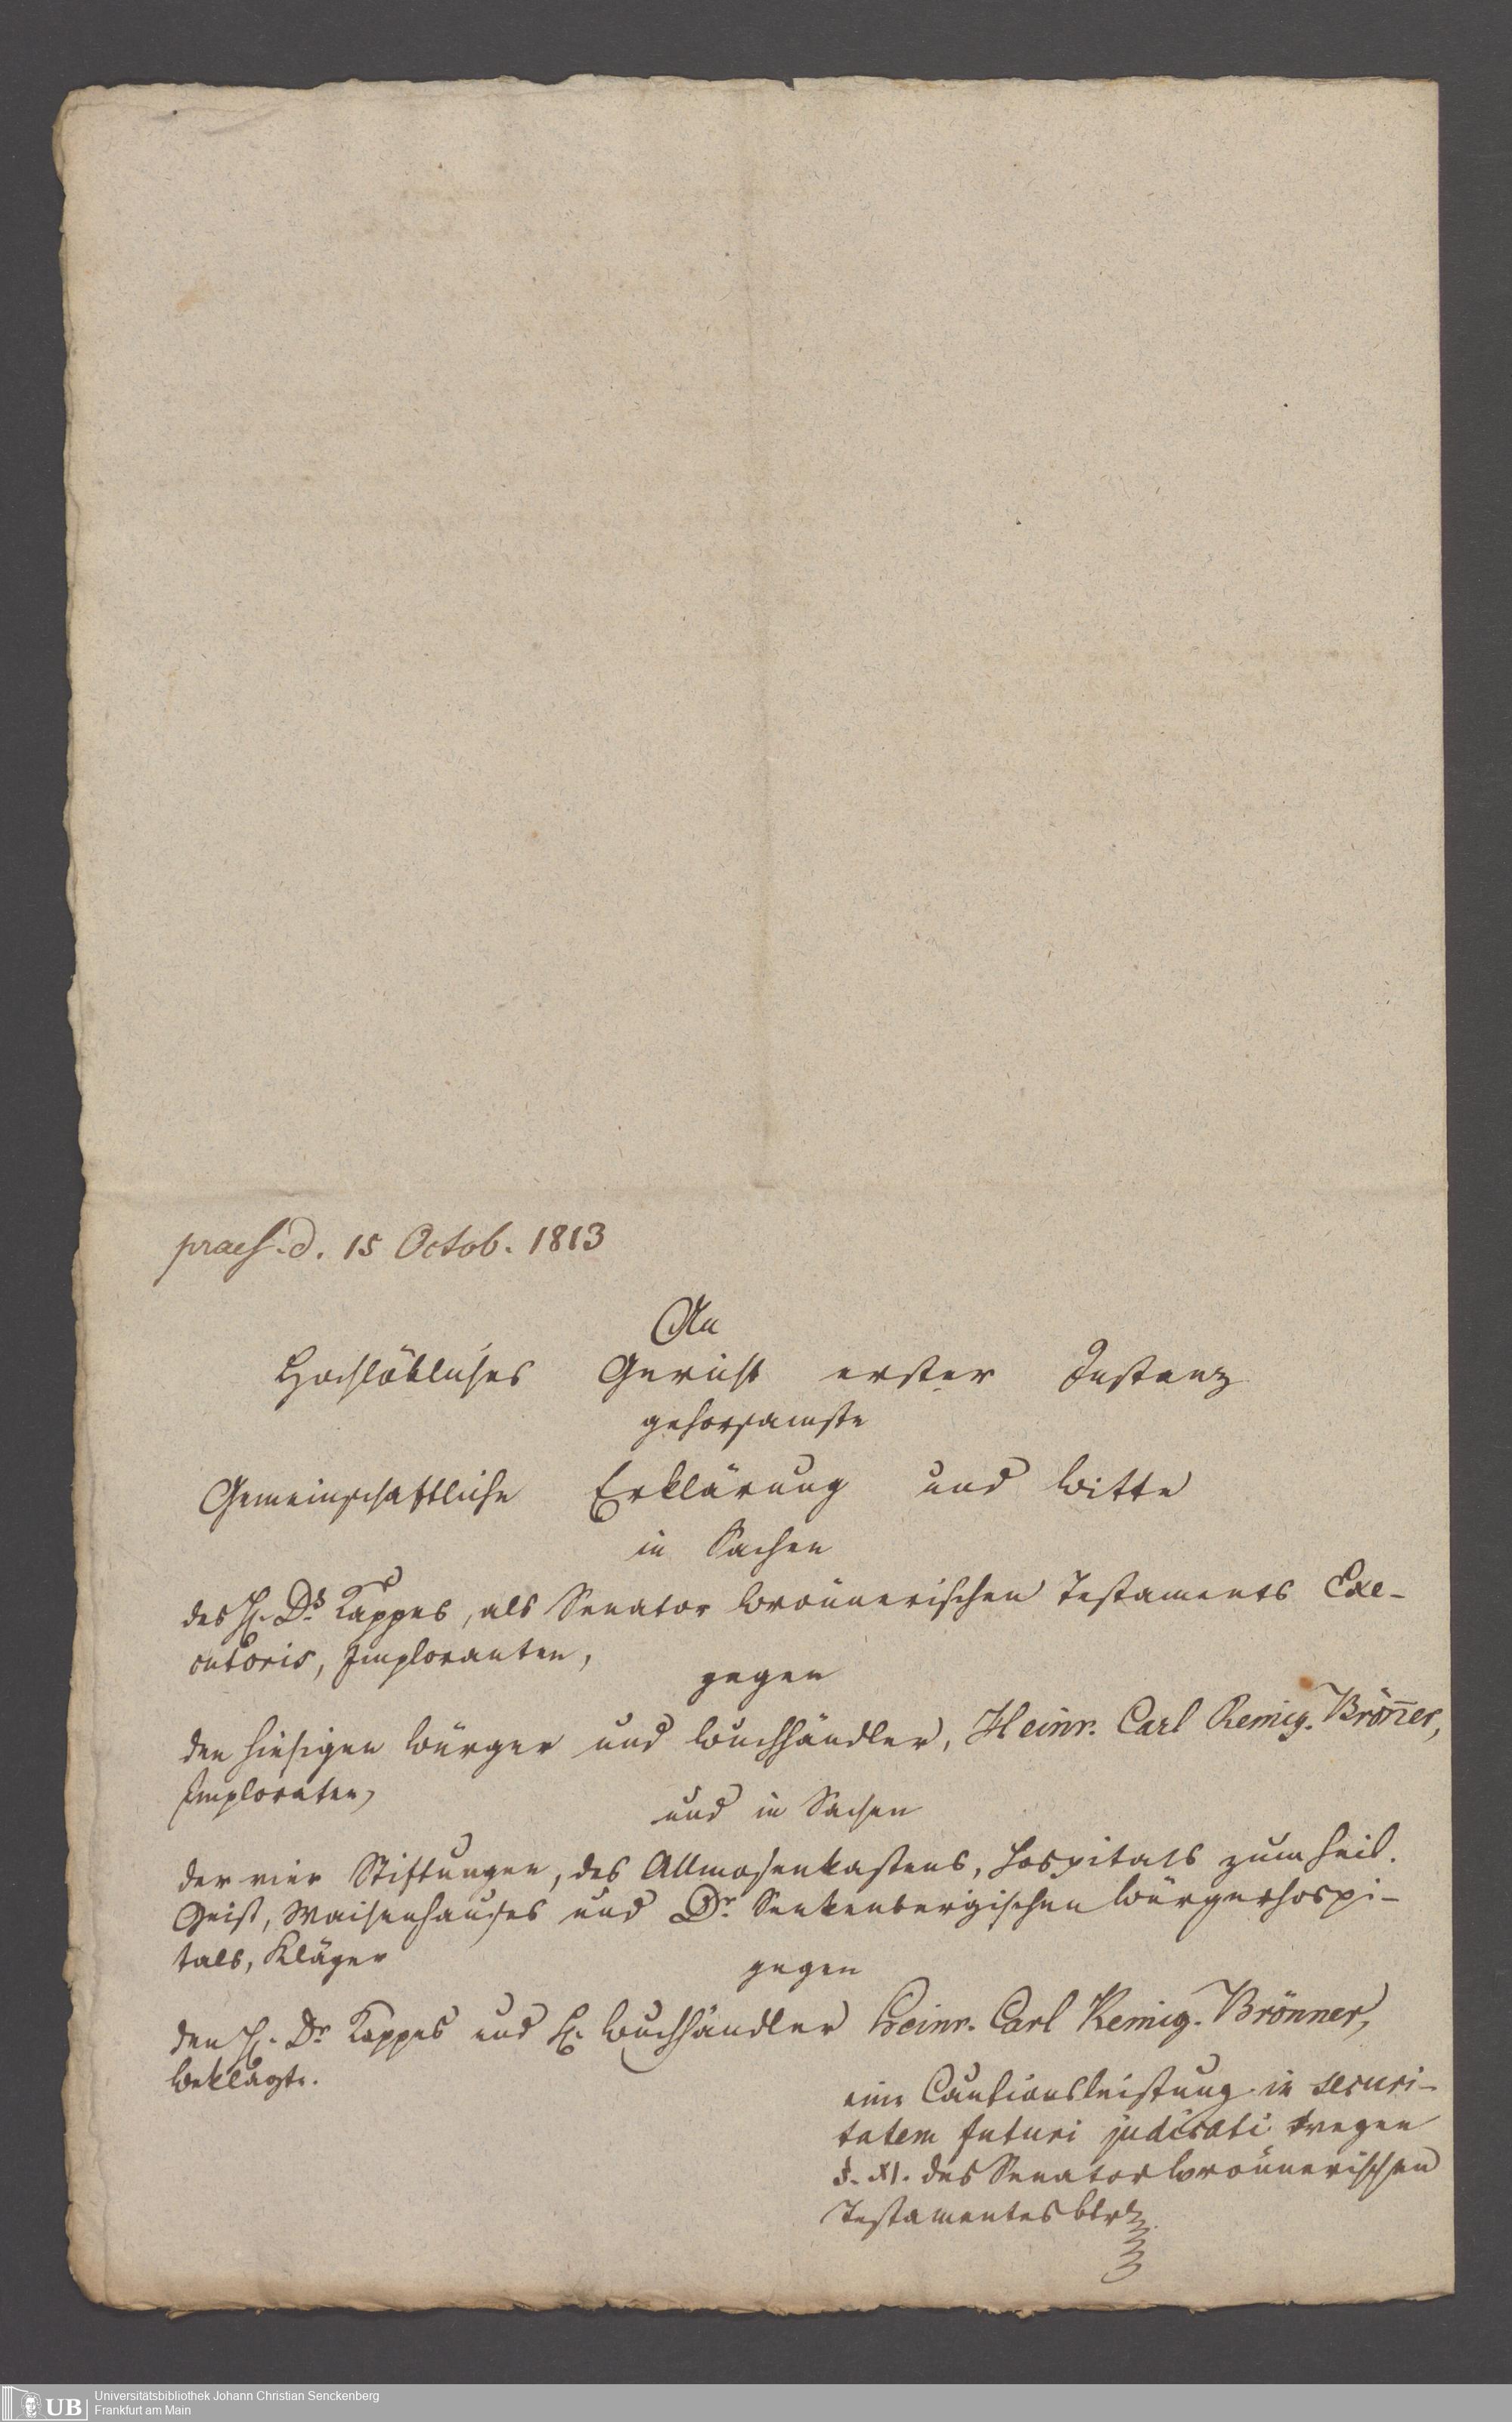 praes. d. 15 Octob. 1813
An
Hochlöbliches Gericht erster Instanz
gehorsamste
Gemeinschaftliche Erklärung und Bitte
in Sachen
des H. Drs Kappes, als Senator Brönnerischen Testaments Exe-
cutoris, Imploranten,
gegen
den hiesigen Bürger und Buchhändler, Heinr. Carl Remig. Brön̄er,
Imploraten,
und in Sachen
der vier Stiftungen, des Allmosenkastens, Hospitals zum heil.
Geist, Waisenhauses und Dr. Senkenbergischen Bürgerhospi-
tals, Kläger
gegen
den H. Dr Kappes und H. Buchhändler Heinr. Carl Remig. Brönner,
Beklagte.
eine Cautionsleistung in securi-
tatem futuri judicati wegen
§. XI. des Senator Brönnerischen
Testamentes btrd
UB
Universitätsbibliothek Johann Christian Senckenberg
Frankfurt am Main